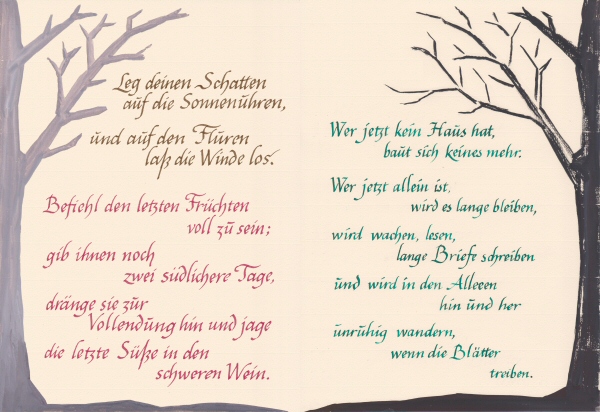 Leg deinen Schatten
auf die Sonnenuhren,
und auf den Fluren
laß die Winde los.
Befiehl den letzten Früchten
voll zu sein;
gib ihnen noch
zwei südlichere Tage,
dränge sie zur
Vollendung hin und jage
die letzte Süße in den
schweren Wein.
Wer jetzt kein Haus hat,
baut sich keines mehr.
Wer jetzt allein ist,
wird es lange bleiben,
wird wachen, lesen,
lange Briefe schreiben
und wird in den Alleeen
hin und her
unruhig wandern,
wenn die Blätter
treiben.